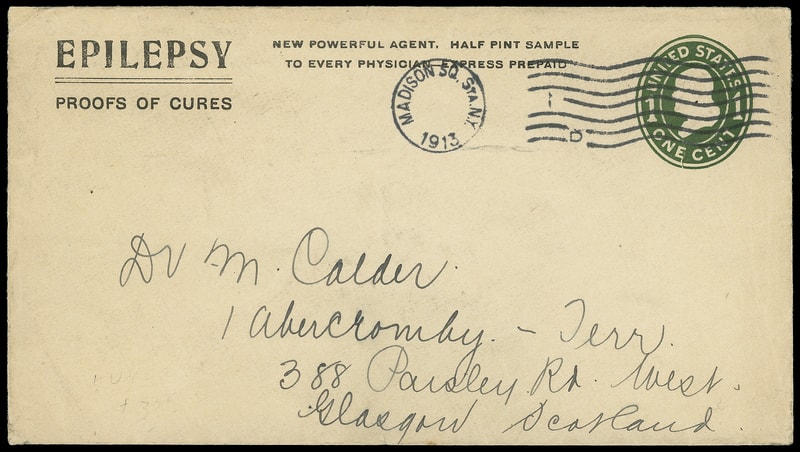 EPILEPSY
PROOFS OF CURES
NEW POWERFUL AGENT. HALF PINT SAMPLE
TO EVERY PHYSICIAN, EXPRESS PREPAID
MADISON SQ. STA. N.Y.
1913
D
UNITED STATES
1 1
ONE CENT
Dr M. Calder.
1 Abercromby. - Terr.
388 Paisley Rd. West.
Glasgow Scotland.